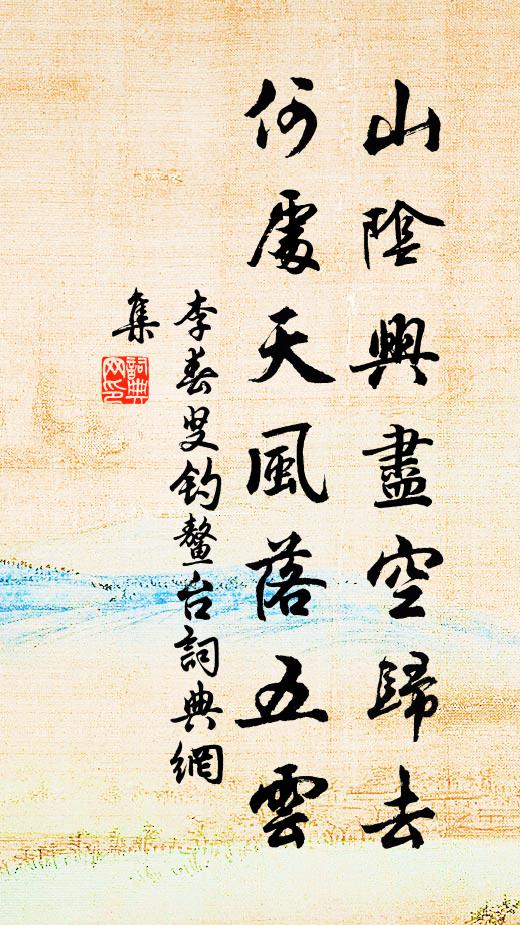 山陰興盡空歸去
何處天風落五雲
李春叟釣鰲台詞典網
集
詞典
网印